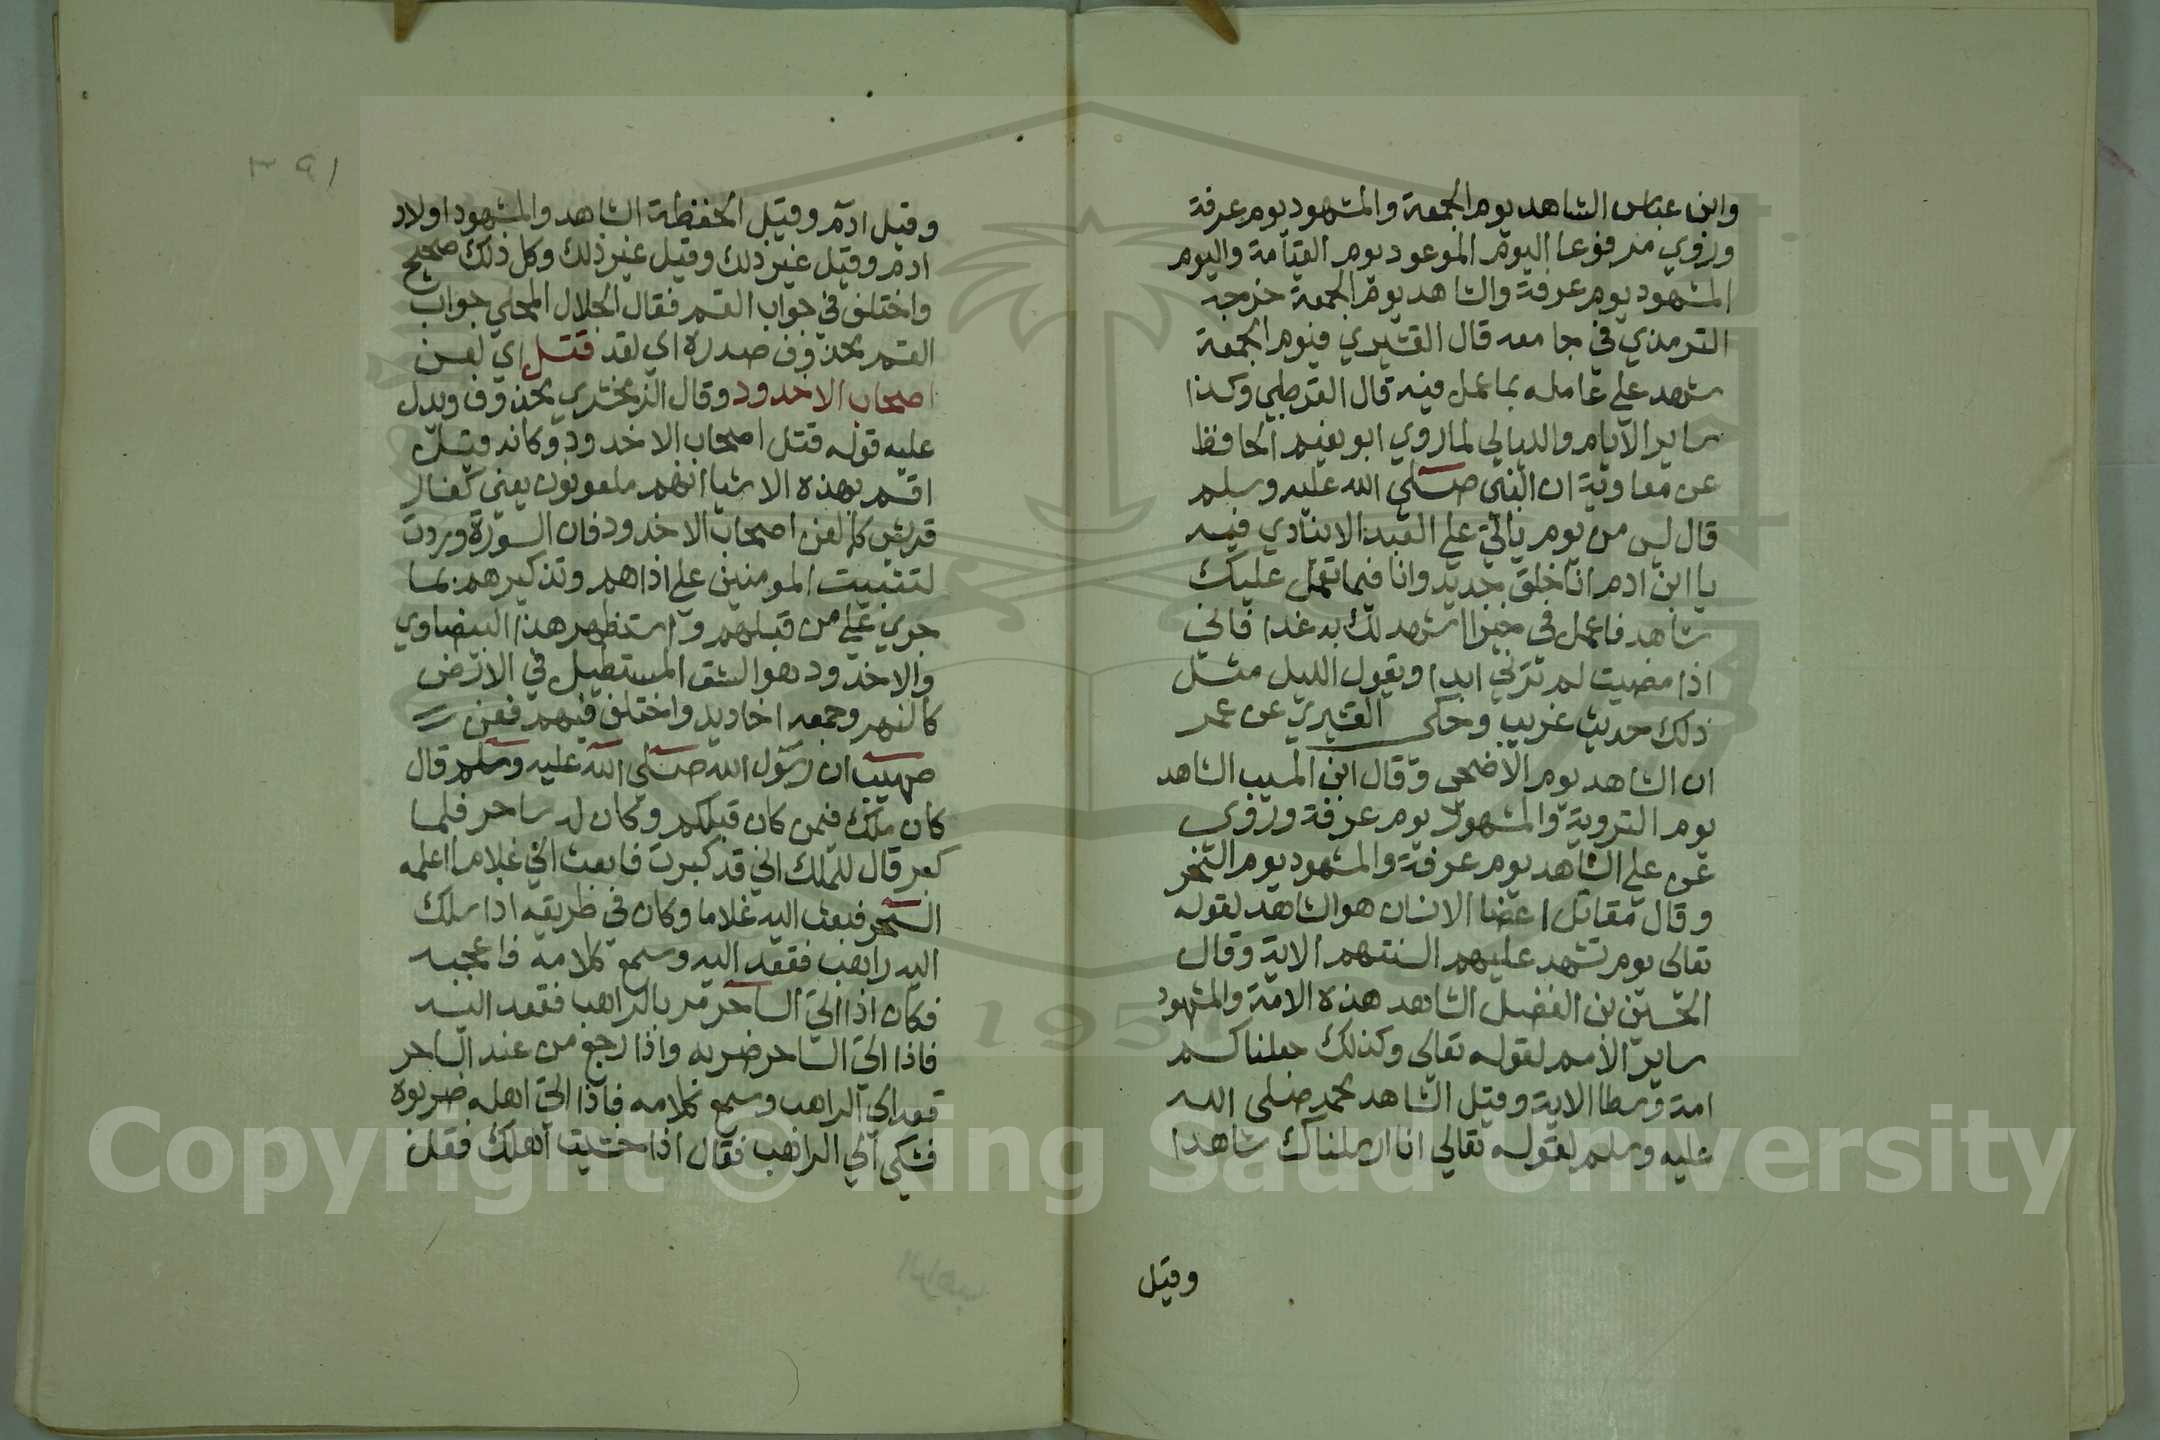 وابن عباس الشاهد يوم الجمعة والمشهود يوم عرفة
وروي مرفوعا اليوم الموعود يوم القيامة واليوم
المشهود يوم عرفة والشاهد يوم الجمعة خرجه
الترمذي في جامعه قال القشيري فيوم الجمعة
شهد علي عامله بما عمل فيه قال القرطبي وكذا
ساير الايام والليالي لما روي ابو نعيم الحافظ
عن معاوية ان النبي صلي الله عليه وسلم
قال ليس من يوم ياتي علي العبد الا ينادي فيه
يا ابن ادم انا خلق جديد وانا فيما تعمل عليك
شاهد فاعمل في خيرا اشهد لك به غدا فاني
اذا مضيت لم ترني ابدا ويقول الليل مثل
ذلك حديث غريب وحكى القشيري عن عمر
ان الشاهد يوم الاضحى وقال ابن المسيب الشاهد
يوم التروية والمشهود يوم عرفة وروى
عن علي الشاهد يوم عرفة والمشهود يوم النحر
وقال مقاتل اعضا الانسان هو الشاهد لقوله
تعالى يوم تشهد عليهم السنتهم الاية وقال
الحسين بن الفضل الشاهد هذه الامة والمشهود
ساير الامم لقوله تعالى وكذلك جعلناكم
امة وسطا الاية وقيل الشاهد محمد صلى الله
عليه وسلم لقوله تعالي انا ارسلناك شاهدا
وقيل
١٩٣
وقيل ادم وقيل الحفظة الشاهد والمشهود اولاد
ادم وقيل غير ذلك وقيل غير ذلك وكل ذلك صحيح
واختلف في جواب القسم فقال الجلال المحلي جواب
القسم محذوف صدره اي لقد قتل اي لعن
اصحاب الاخدود وقال الزمخشري محذوف ويدل
عليه قوله قتل اصحاب الاخدود وكانه قيل
اقسم بهذه الاشيا انهم ملعونون يعني كفار
قريش كما لعن اصحاب الاخدود فان السورة وردت
لتثبيت المومنين علي اذاهم وتذكيرهم بما
جري علي من قبلهم واستظهر هذا البيضاوي
والاخدود هو الشق المستطيل في الارض
كالنهر وجمعه اخاديد واختلف فيهم فعن
صهيب ان رسول الله صلي الله عليه وسلم قال
كان ملك فيمن كان قبلكم وكان له ساحر فلما
كبر قال للملك اني قد كبرت فابعث الي غلاما اعلمه
السحر فبعث اليه غلاما وكان في طريقه اذا سلك
اليه راهب فقعد اليه وسمع كلامه فاعجبه
فكان اذا اتي الساحر مر بالراهب فقعد اليه
فاذا اتي الساحر ضربه واذا رجع من عند الساحر
قعد الي الراهب وسمع كلامه فاذا اتي اهله ضربوه
فشكي الي الراهب فقال اذا خشيت اهلك فقل
الراهب
1957
Copyright © King Saud University